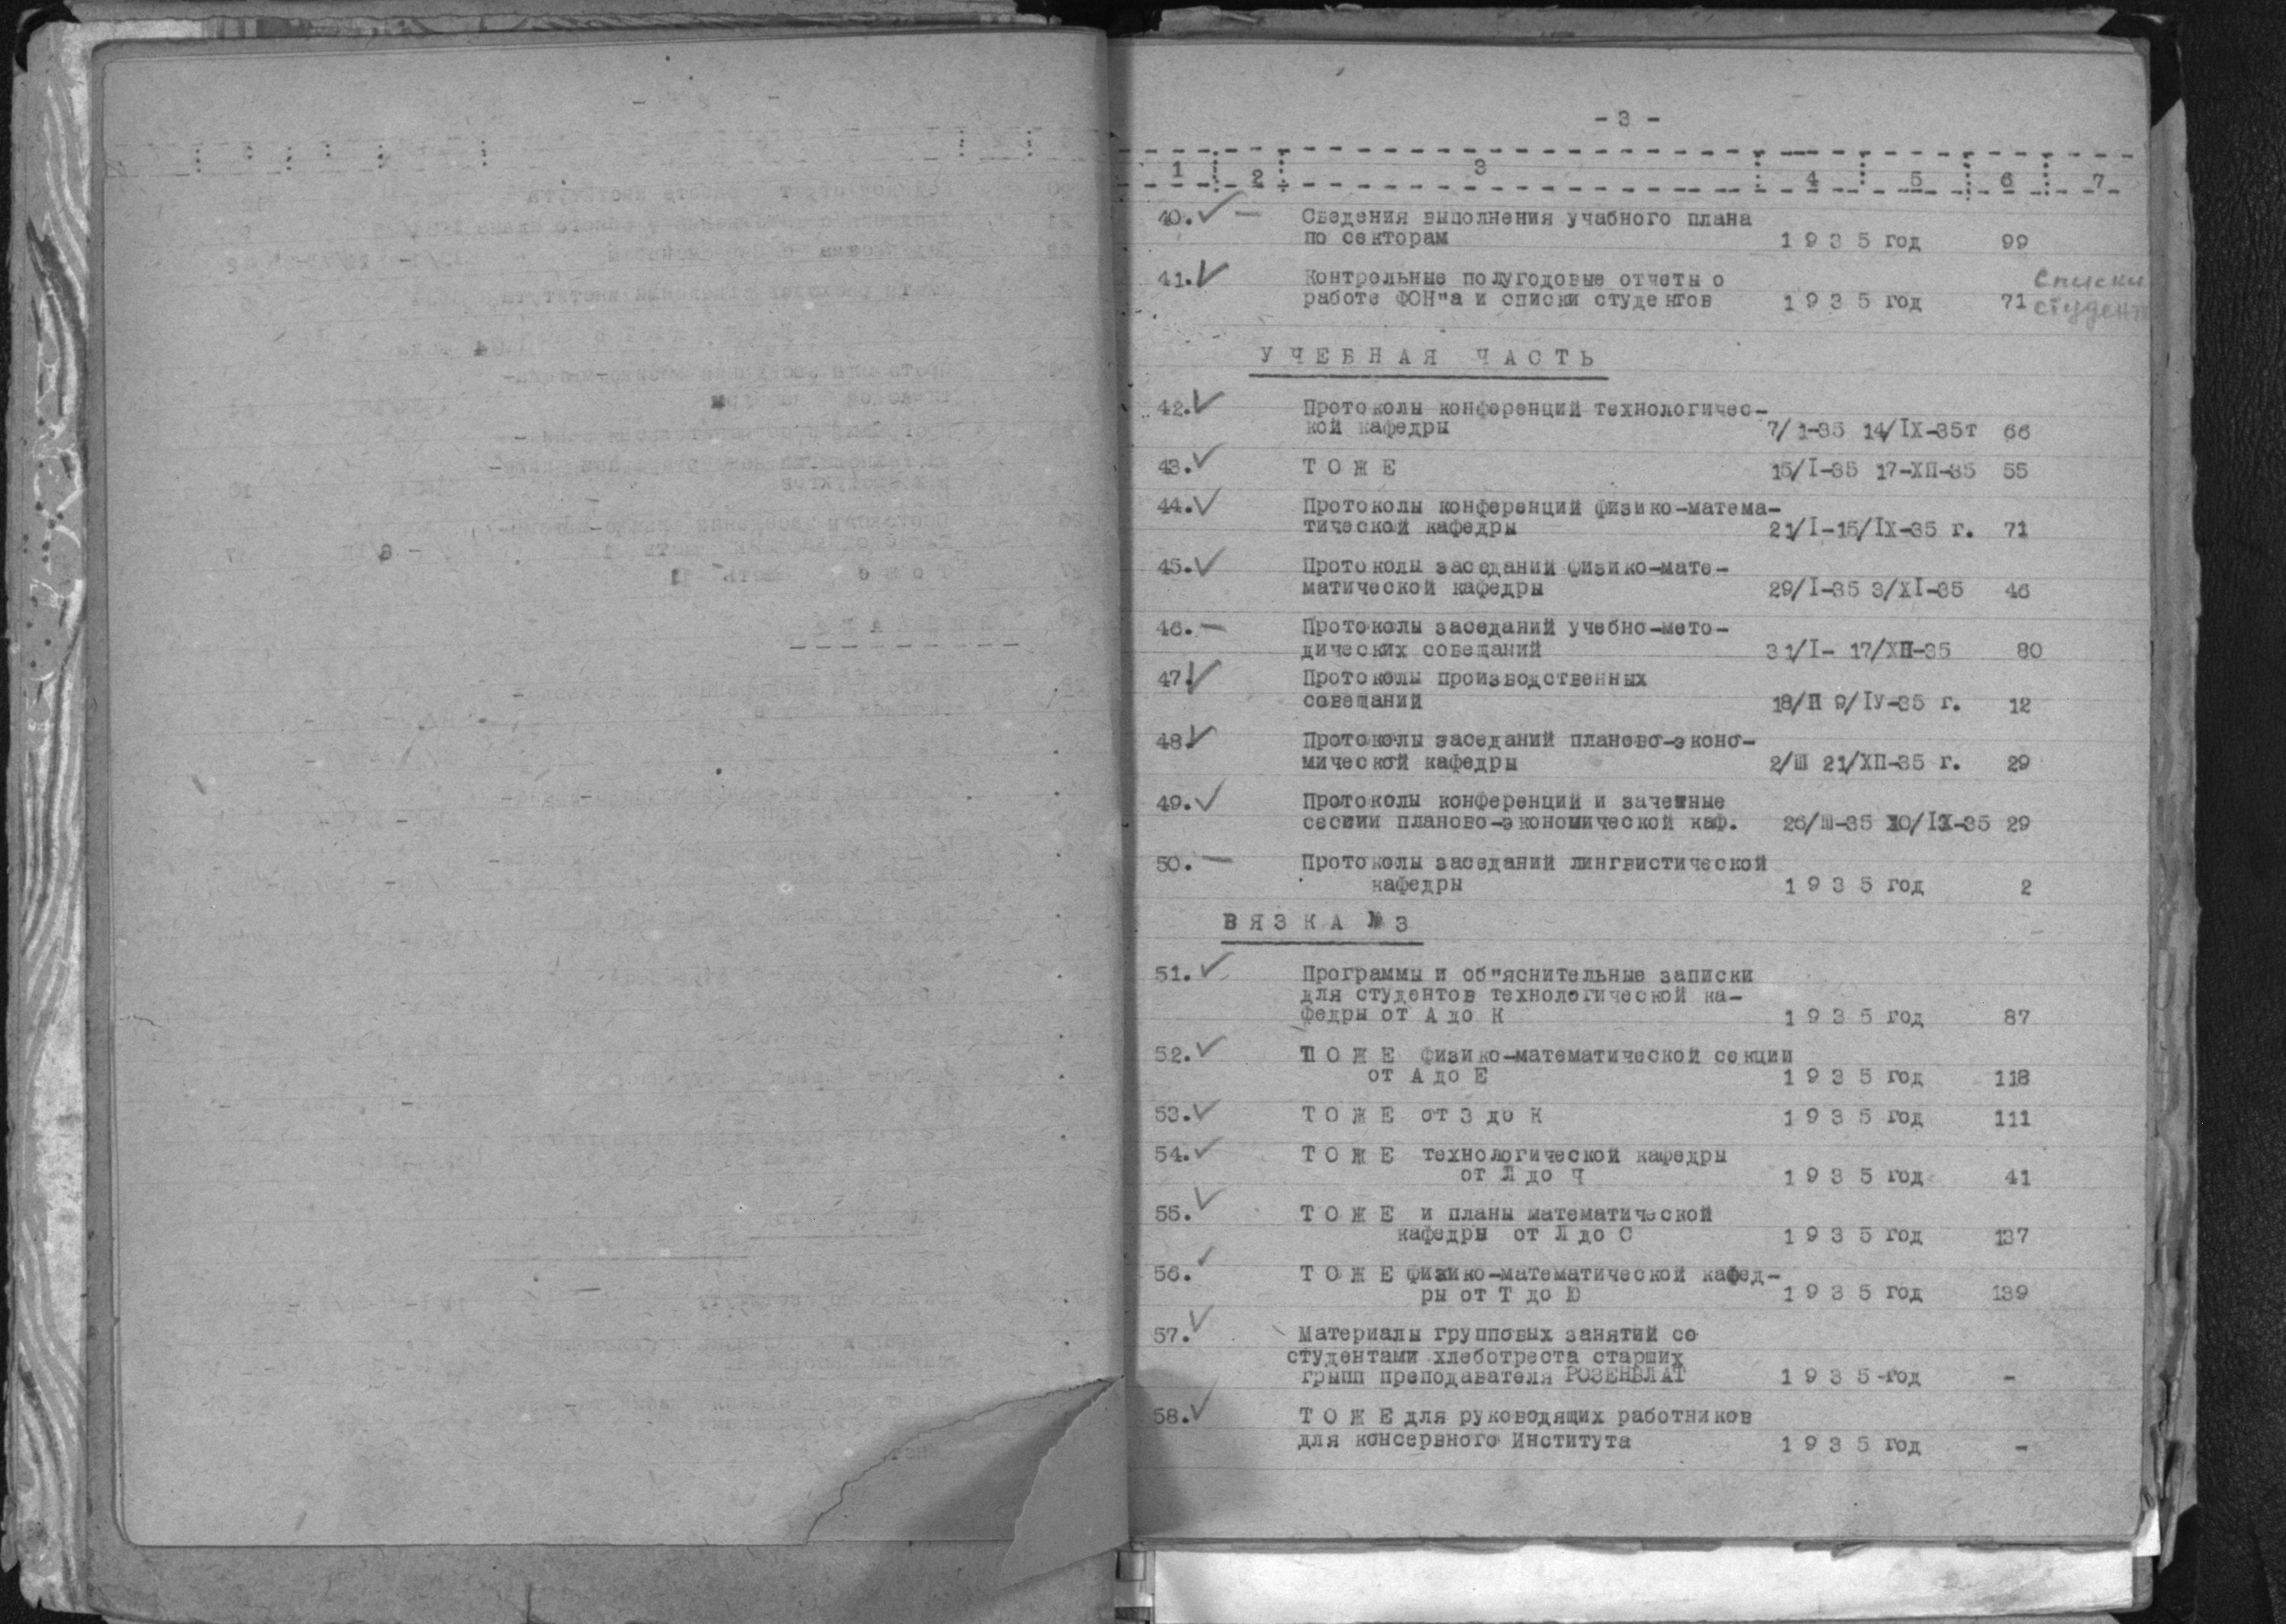 - 3 -
1 2 3 4 5 6 7
40. ✓ — Сведения выполнения учабного плана
по секторам 1 9 3 5 год 99
41. ✓ Контрольные полугодовые отчеты о Списки
работе ФОН"а и списки студентов 1 9 3 5 год 71 студент
У Ч Е Б Н А Я Ч А С Т Ь
42. ✓ Протоколы конференций технологичес-
кой кафедры 7/1-35 14/IX-35г 66
43. ✓ Т О Ж Е 15/I-35 17-ХП-35 55
44. ✓ Протоколы конференций физико-матема-
тической кафедры 21/I-15/IX-35 г. 71
45. ✓ Протоколы заседаний физико-мате-
матической кафедры 29/I-35 3/XI-35 46
46. — Протоколы заседаний учебно-мето-
дических совещаний 31/I- 17/ХП-35 80
47. ✓ Протоколы производственных
совещаний 18/П 9/IУ-35 г. 12
48. ✓ Протоколы заседаний планово-эконо-
мической кафедры 2/Ш 21/ХП-35 г. 29
49. ✓ Протоколы конференций и зачетные
сессии планово-экономической каф. 26/Ш-35 /IX-35 29
50. — Протоколы заседаний лингвистической
кафедры 1 9 3 5 год 2
В Я З К А № 3
51. ✓ Программы и об"яснительные записки
для студентов технологической ка-
федры от А до К 1 9 3 5 год 87
52. ✓ ТО Ж Е физико-математической секции
от А до Е 1 9 3 5 год 118
53. ✓ Т О Ж Е от З до К 1 9 3 5 год 111
54. ✓ Т О Ж Е технологической кафедры
от Л до Ч 1 9 3 5 год 41
55. ✓ Т О Ж Е и планы математической
кафедры от Л до С 1 9 3 5 год 137
56. ✓ Т О Ж Е физико-математической кафед-
ры от Т до Ю 1 9 3 5 год 139
57. ✓ Материалы групповых занятий со
студентами хлеботреста старших
грыпп преподавателя РОЗЕНБЛАТ 1 9 3 5 год -
58. ✓ Т О Ж Е для руководящих работников
для консервного Института 1 9 3 5 год -